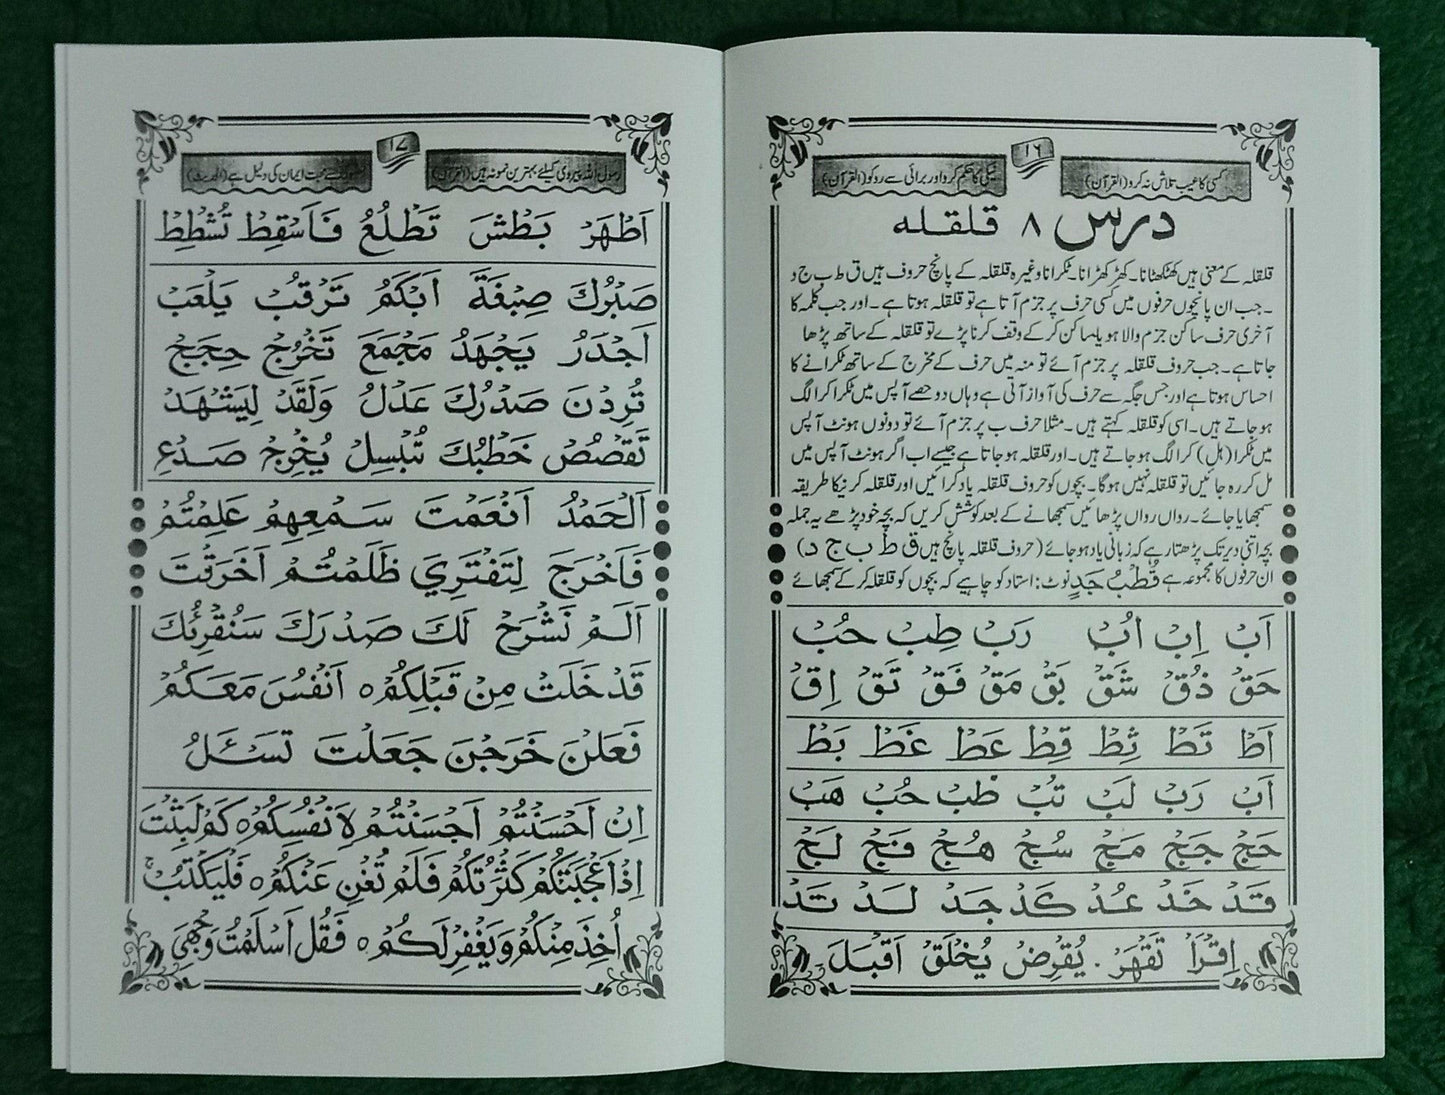 ۱۶
کسی کا عیب تلاش نہ کرو (القرآن)
نیکی کا حکم کرو اور برائی سے روکو (القرآن)
درس ۸ قلقلہ
قلقلہ کے معنی ہیں کھٹکھٹانا۔ کھڑ کھڑانا۔ ٹکرانا وغیرہ قلقلہ کے پانچ حروف ہیں ق ط ب ج د
۔ جب ان پانچوں حرفوں میں کسی حرف پر جزم آتا ہے تو قلقلہ ہوتا ہے۔ اور جب کلمہ کا
آخری حرف ساکن جزم والا ہو یا ساکن کر کے وقف کرنا پڑے تو قلقلہ کے ساتھ پڑھا
جاتا ہے۔ جب حروف قلقلہ پر جزم آئے تو منہ میں حرف کے مخرج کے ساتھ ٹکرانے کا
احساس ہوتا ہے اور جس جگہ سے حرف کی آواز آتی ہے وہاں دو حصے آپس میں ٹکرا کر الگ
ہو جاتے ہیں۔ اسی کو قلقلہ کہتے ہیں۔ مثلا حرف ب پر جزم آئے تو دونوں ہونٹ آپس
میں ٹکرا (ہل) کر الگ ہو جاتے ہیں۔ اور قلقلہ ہو جاتا ہے جیسے اب اگر ہونٹ آپس میں
مل کر رہ جائیں تو قلقلہ نہیں ہوگا۔ بچوں کو حروف قلقلہ یاد کرائیں اور قلقلہ کرنیکا طریقہ
سمجھایا جائے۔ رواں رواں پڑھائیں سمجھانے کے بعد کوشش کریں کہ بچہ خود پڑھے یہ جملہ
بچہ اتنی دیر تک پڑھتا رہے کہ زبانی یاد ہو جائے (حروف قلقلہ پانچ ہیں ق ط ب ج د)
ان حرفوں کا مجموعہ ہے قُطْبُ جَدٍ نوٹ: استاد کو چاہیے کہ بچوں کو قلقلہ کر کے سمجھائے
اَبْ اِبْ اُبْ رَبْ طِبْ حُبْ
حَقْ ذُقْ شَقْ بَقْ مَقْ فَقْ تَقْ اِقْ
اَطْ تَطْ ثِطْ قِطْ عَطْ غَطْ بَطْ
اَبْ رَبْ لَبْ تُبْ طْبْ حُبْ هَبْ
حَجْ جَجْ مَجْ سُجْ هُجْ فَجْ لَجْ
قَدْ خَدْ عُدْ كَدْ جَدْ لَدْ تَدْ
اِقْرَاْ تَقْهَرْ۔ يُقْرِضْ يُخْلَقْ اَقْبَلَ
۱۷
رسول اللہ پیروی کیلئے بہترین نمونہ ہیں (القرآن)
محبت ایمان کی دلیل ہے (الحدیث)
اَطْهَرْ بَطْشَ تَطْلُعُ فَاَسْقِطْ تُشْطِطْ
صَبْرُكَ صِبْغَةَ اَبْكَمُ تَرْقُبْ يَلْعَبْ
اَجْدَرُ يَجْهَدُ مَجْمَعَ تَخْرُجْ حِجَجْ
تُرِدْنَ صَدْرُكَ عَدْلُ وَلَقَدْ لِيَشْهَدْ
تَقْصُصْ خَطْبُكَ تُبْسِلْ يُخْرِجْ صَدْعِ
اَلْحَمْدُ اَنْعَمْتَ سَمْعِهِمْ عَلِمْتُمْ
فَاَخْرَجَ لِتَفْتَرِيَ ظَلَمْتُمْ اَخَرَقْتَ
اَلَمْ نَشْرَحْ لَكَ صَدْرَكَ سَنُقْرِئُكَ
قَدْ خَلَتْ مِنْ قَبْلِكُمْ ہ اَنْفُسَ مَعَكُمْ
فَعَلْنَ خَرَجْنَ جَعَلْتَ تَسْـَٔلُ
اِنْ اَحْسَنْتُمْ اَحْسَنْتُمْ لِاَنْفُسِكُمْ ہ كَمْ لَبِثْتَ
اِذْ اَعْجَبَتْكُمْ كَثْرَتُكُمْ فَلَمْ تُغْنِ عَنْكُمْ ہ فَلْيَكْتُبْ
اُخِذَ مِنْكُمْ وَيَغْفِرْ لَكُمْ ہ فَقُلْ اَسْلَمْتُ وَجْهِيَ